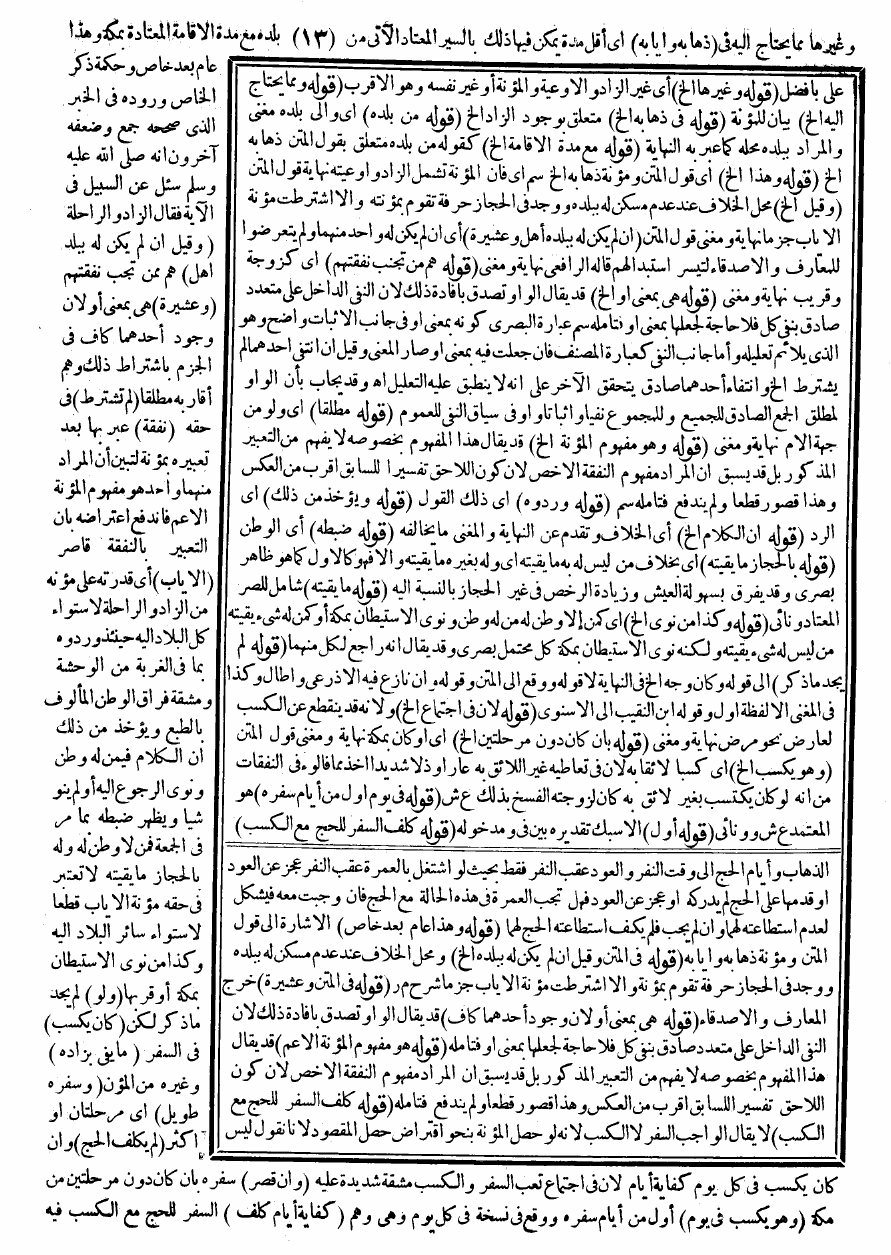 وغيرها مما يحتاج اليه فى (ذهابه وايابه) اى أقل مدة يمكن فيها ذلك بالسير المعتاد الآتى من (١٣) بلده مع مدة الاقامة المعتادة بمكة وهذا
عام بعد خاص وحكمة ذكر
الخاص وروده فى الخبر
الذى صححه جمع وضعفه
آخرون انه صلى الله عليه
وسلم سئل عن السبيل فى
الآية فقال الزاد والراحلة
(وقيل ان لم يكن له ببلد
اهل) هم من تجب نفقتهم
(وعشيرة) هى بمعنى أو لان
وجود أحدهما كاف فى
الجزم باشتراط ذلك وهم
أقاربه مطلقا (لم تشترط) فى
حقه (نفقة) عبر بها بعد
تعبيره بمؤنة لتبين أن المراد
منهما واحد هو مفهوم المؤنة
الاعم فاندفع اعتراضه بان
التعبير بالنفقة قاصر
(الاياب) أى قدرته على مؤنه
من الزاد والراحلة لاستواء
كل البلاد اليه حينئذ وردوه
بما فى الغربة من الوحشة
ومشقة فراق الوطن المألوف
بالطبع ويؤخذ من ذلك
أن الكلام فيمن له وطن
ونوى الرجوع اليه أو لم ينو
شيأ ويظهر ضبطه بما مر
فى الجمعة فمن لا وطن له وله
بالحجاز ما يقيته لا تعتبر
فى حقه مؤنة الاياب قطعا
لاستواء سائر البلاد اليه
وكذا من نوى الاستيطان
بمكة أو قربها (ولو) لم يجد
ما ذكر لكن (كان يكسب)
فى السفر (ما يفى بزاده)
وغيره من المؤن (وسفره
طويل) اى مرحلتان او
اكثر (لم يكلف الحج) وان
كان يكسب فى كل يوم كفاية أيام لان فى اجتماع تعب السفر والكسب مشقة شديدة عليه (وان قصر) سفره بان كان دون مرحلتين من
مكة (وهو يكسب فى يوم) أول من أيام سفره ووقع فى نسخة فى كل يوم وهى وهم (كفاية أيام كلف) السفر للحج مع الكسب فيه
على بافضل (قوله وغيرها الخ) أى غير الزاد والاوعية والمؤنة أو غير نفسه وهو الاقرب (قوله ومما يحتاج
اليه الخ) بيان للمؤنة (قوله فى ذهابه الخ) متعلق بوجود الزاد الخ (قوله من بلده) اى والى بلده مغنى
والمراد ببلده محله كما عبر به النهاية (قوله مع مدة الاقامة الخ) كقوله من بلده متعلق بقول المتن ذهابه
الخ (قوله وهذا الخ) اى قول المتن ومؤنة ذهابه الخ سم اى فان المؤنة تشمل الزاد وأوعيته نهاية قول المتن
(وقيل الخ) محل الخلاف عند عدم مسكن له ببلده ووجد فى الحجاز حرفة تقوم بمؤنته والا اشترطت مؤنة
الاياب جزما نهاية ومغنى قول المتن (ان لم يكن له ببلده أهل وعشيرة) أى ان لم يكن له واحد منهما ولم يتعرضوا
للمعارف والاصدقاء لتيسر استبدالهم قاله الرافعى نهاية ومغنى (قوله هم من تجب نفقتهم) اى كزوجة
وقريب نهاية ومغنى (قوله هى بمعنى او الخ) قد يقال الواو تصدق بافادة ذلك لان النفى الداخل على متعدد
صادق بنفى كل فلا حاجة لجعلها بمعنى او فتأمله سم عبارة البصرى كونه بمعنى او فى جانب الاثبات واضح وهو
الذى يلائم تعليله وأما جانب النفى كعبارة المصنف فان جعلت فيه بمعنى او صار المعنى وقيل ان انتفى احدهما لم
يشترط الخ وانتفاء أحدهما صادق يتحقق الآخر على انه لا ينطبق عليه التعليل اه وقد يجاب بأن الواو
لمطلق الجمع الصادق للجميع وللمجموع نفيا واثباتا واو فى سياق النفى للعموم (قوله مطلقا) اى ولو من
جهة الام نهاية ومغنى (قوله وهو مفهوم المؤنة الخ) قد يقال هذا المفهوم بخصوصه لا يفهم من التعبير
المذكور بل قد يسبق ان المراد مفهوم النفقة الاخص لان كون اللاحق تفسيرا للسابق اقرب من العكس
وهذا قصور قطعا ولم يندفع فتأمله سم (قوله وردوه) اى ذلك القول (قوله ويؤخذ من ذلك) اى
الرد (قوله ان الكلام الخ) أى الخلاف وتقدم عن النهاية والمغنى ما يخالفه (قوله ضبطه) أى الوطن
(قوله بالحجاز ما يقيته) اى بخلاف من ليس له به ما يقيته اى وله بغيره ما يقيته والا فهو كالاول كما هو ظاهر
بصرى وقد يفرق بسهولة العيش وزيادة الرخص فى غير الحجاز بالنسبة اليه (قوله ما يقيته) شامل للصر
المعتاد ونائى (قوله وكذا من نوى الخ) اى كمن لا وطن له من له وطن ونوى الاستيطان بمكة أو كمن له شىء يقيته
من ليس له شىء يقيته ولكنه نوى الاستيطان بمكة كل محتمل بصرى وقد يقال انه راجع لكل منهما (قوله لم
يجد ما ذكر) الى قوله وكان وجه الخ فى النهاية لا قوله ووقع الى المتن وقوله وان نازع فيه الاذرعى واطال وكذا
فى المغنى الا لفظة اول وقوله ابن النقيب الى الاسنوى (قوله لان فى اجتماع الخ) ولانه قد ينقطع عن الكسب
لعارض نحو مرض نهاية ومغنى (قوله بان كان دون مرحلتين الخ) اى او كان بمكة نهاية ومغنى قول المتن
(وهو يكسب الخ) اى كسبا لائقا به لان فى تعاطيه غير اللائق به عار او ذلا شديدا اخذا مما قالوه فى النفقات
من انه لو كان يكتسب بغير لائق به كان لزوجته الفسخ بذلك ع ش (قوله فى يوم اول من أيام سفره) هو
المعتمد ع ش وونائى (قوله أول) الاسبك تقديره بين فى ومدخوله (قوله كلف السفر للحج مع الكسب)
الذهاب وأيام الحج الى وقت النفر والعود عقب النفر فقط بحيث لو اشتغل بالعمرة عقب النفر عجز عن العود
او قدمها على الحج لم يدركه او عجز عن العود فهل تجب العمرة فى هذه الحالة مع الحج فان وجبت معه فيشكل
لعدم استطاعته لهما وان لم يجب فلم يكف استطاعته الحج لهما (قوله وهذا عام بعد خاص) الاشارة الى قول
المتن ومؤنة ذهابه وايابه (قوله فى المتن وقيل ان لم يكن له ببلده الخ) ومحل الخلاف عند عدم مسكن له ببلده
ووجد فى الحجاز حرفة تقوم بمؤنة والا اشترطت مؤنة الاياب جزما شرح م ر (قوله فى المتن وعشيرة) خرج
المعارف والاصدقاء (قوله هى بمعنى أو لان وجود أحدهما كاف) قد يقال الواو تصدق بافادة ذلك لان
النفى الداخل على متعدد صادق بنفى كل فلا حاجة لجعلها بمعنى او فتأمله (قوله هو مفهوم المؤنة الاعم) قد يقال
هذا المفهوم بخصوصه لا يفهم من التعبير المذكور بل قد يسبق ان المراد مفهوم النفقة الاخص لان كون
اللاحق تفسير السابق اقرب من العكس وهذا قصور قطعا ولم يندفع فتأمله (قوله كلف السفر للحج مع
الكسب) لا يقال الواجب السفر لا الكسب لانه لو حصل المؤنة بنحو اقتراض حصل المقصود لانا نقول ليس